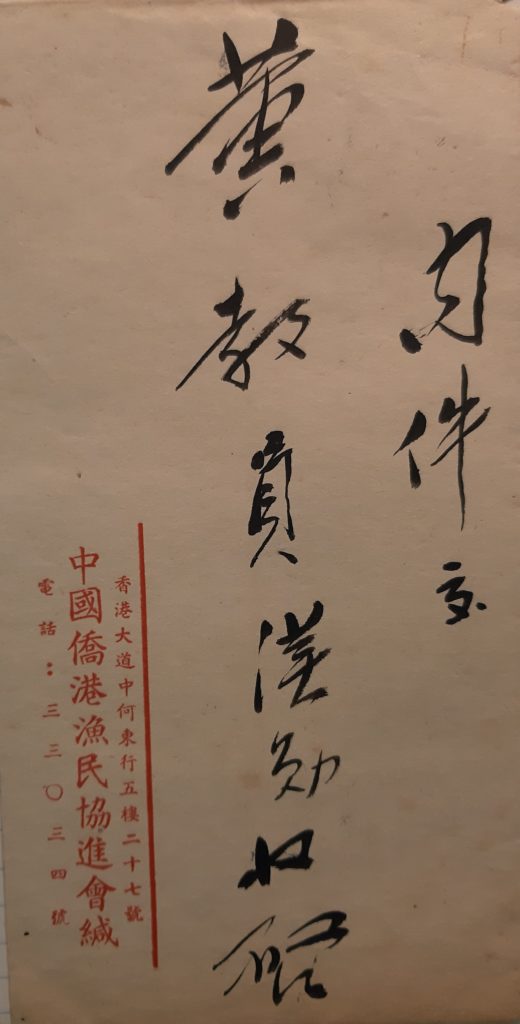 內件交
黃教員漢勛收啓
香港大道中何東行五樓二十七號
中國僑港漁民協進會緘
電話：三三〇三四號